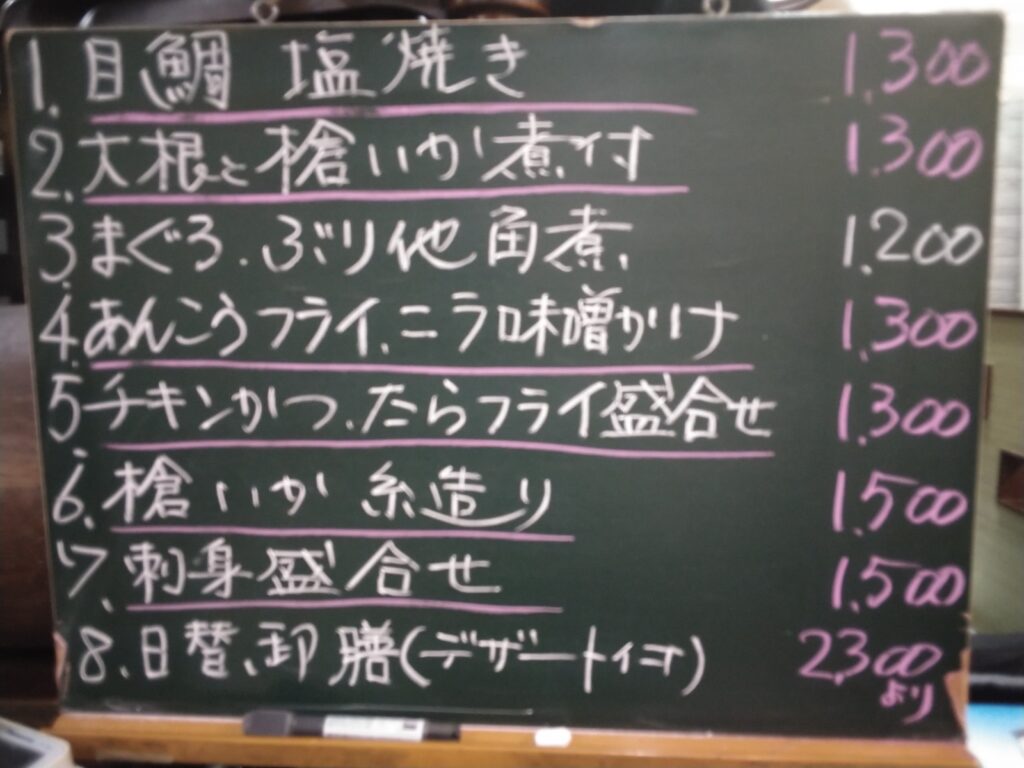 1. 目鯛 塩焼き 1.300
2. 大根と槍いか煮付 1.300
3. まぐろ.ぶり他角煮 1.200
4. あんこうフライ、ニラ味噌かけ 1.300
5 チキンかつ、たらフライ盛合せ 1.300
6. 槍いか 糸造り 1.500
7. 刺身盛合せ 1.500
8. 日替、御膳(デザート付) 2.300
より